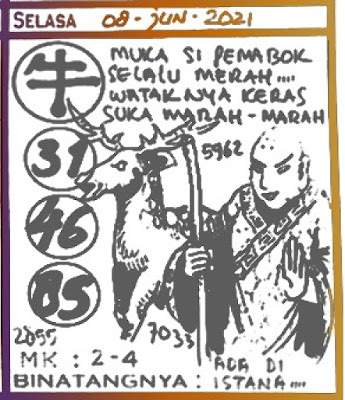 SELASA 08-JUN-2021
牛
MUKA SI PEMABOK
SELALU MERAH....
WATAKNYA KERAS
SUKA MARAH-MARAH
31
5962
46
05
2055
7033
MK : 2-4
ADA DI
BINATANGNYA : ISTANA....